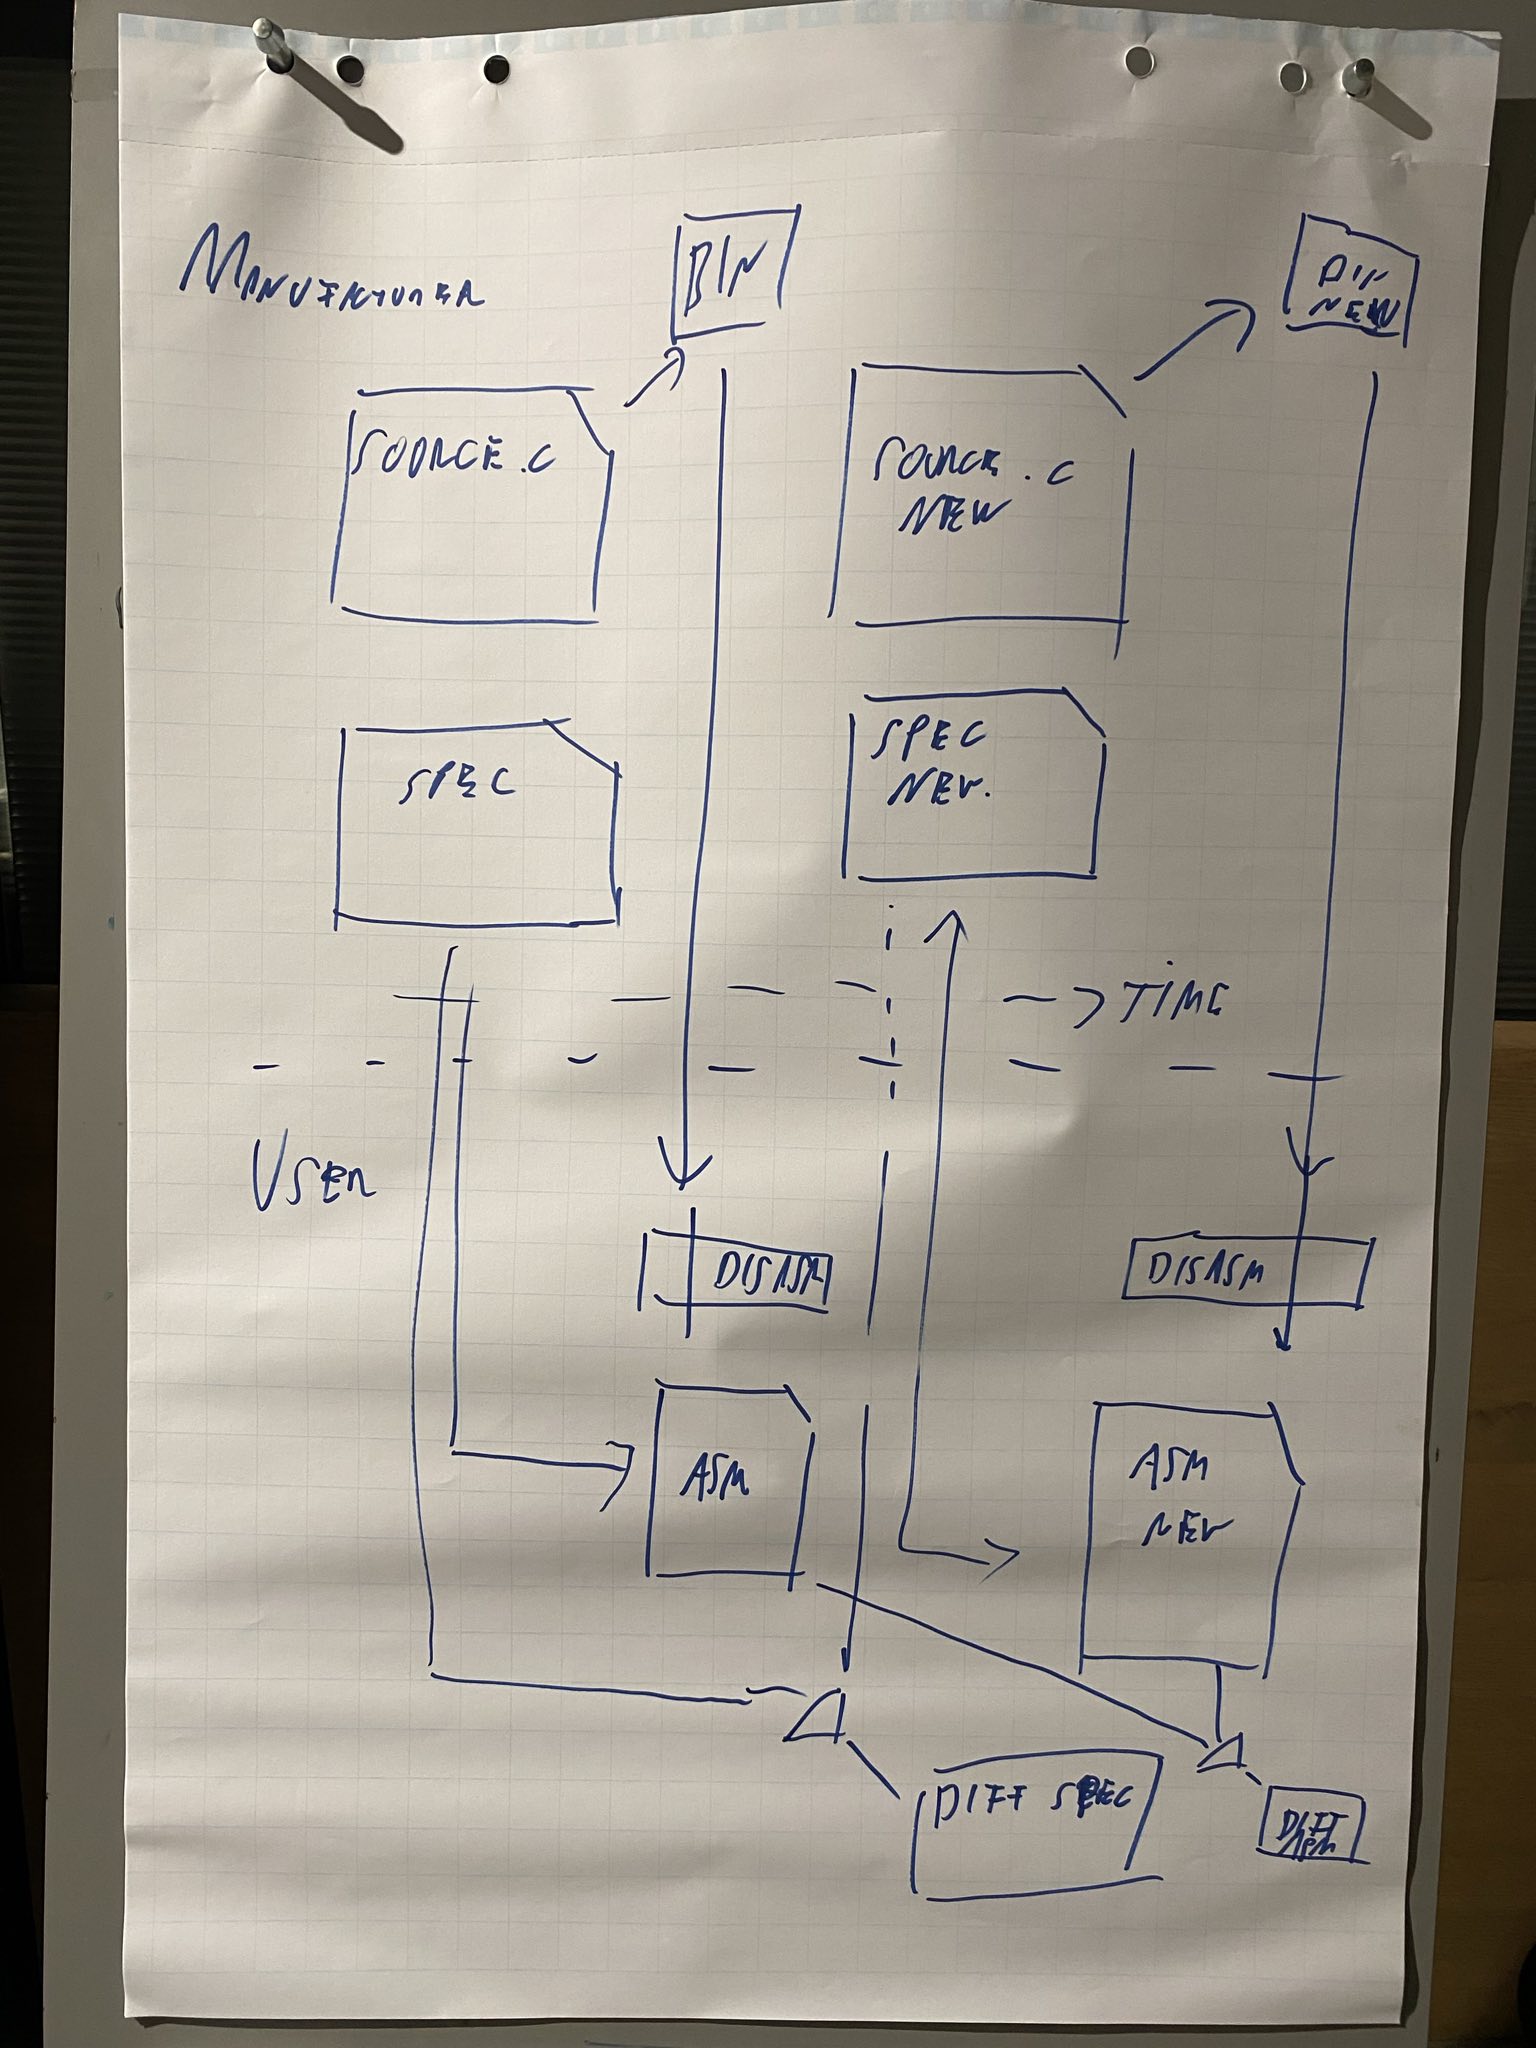 MANUFACTURER
BIN
BIN
NEW
SOURCE.C
SOURCE.C
NEW
SPEC
SPEC
NEW.
TIME
USER
DISASM
DISASM
ASM
ASM
NEW
DIFF SPEC
DIFF
ASM